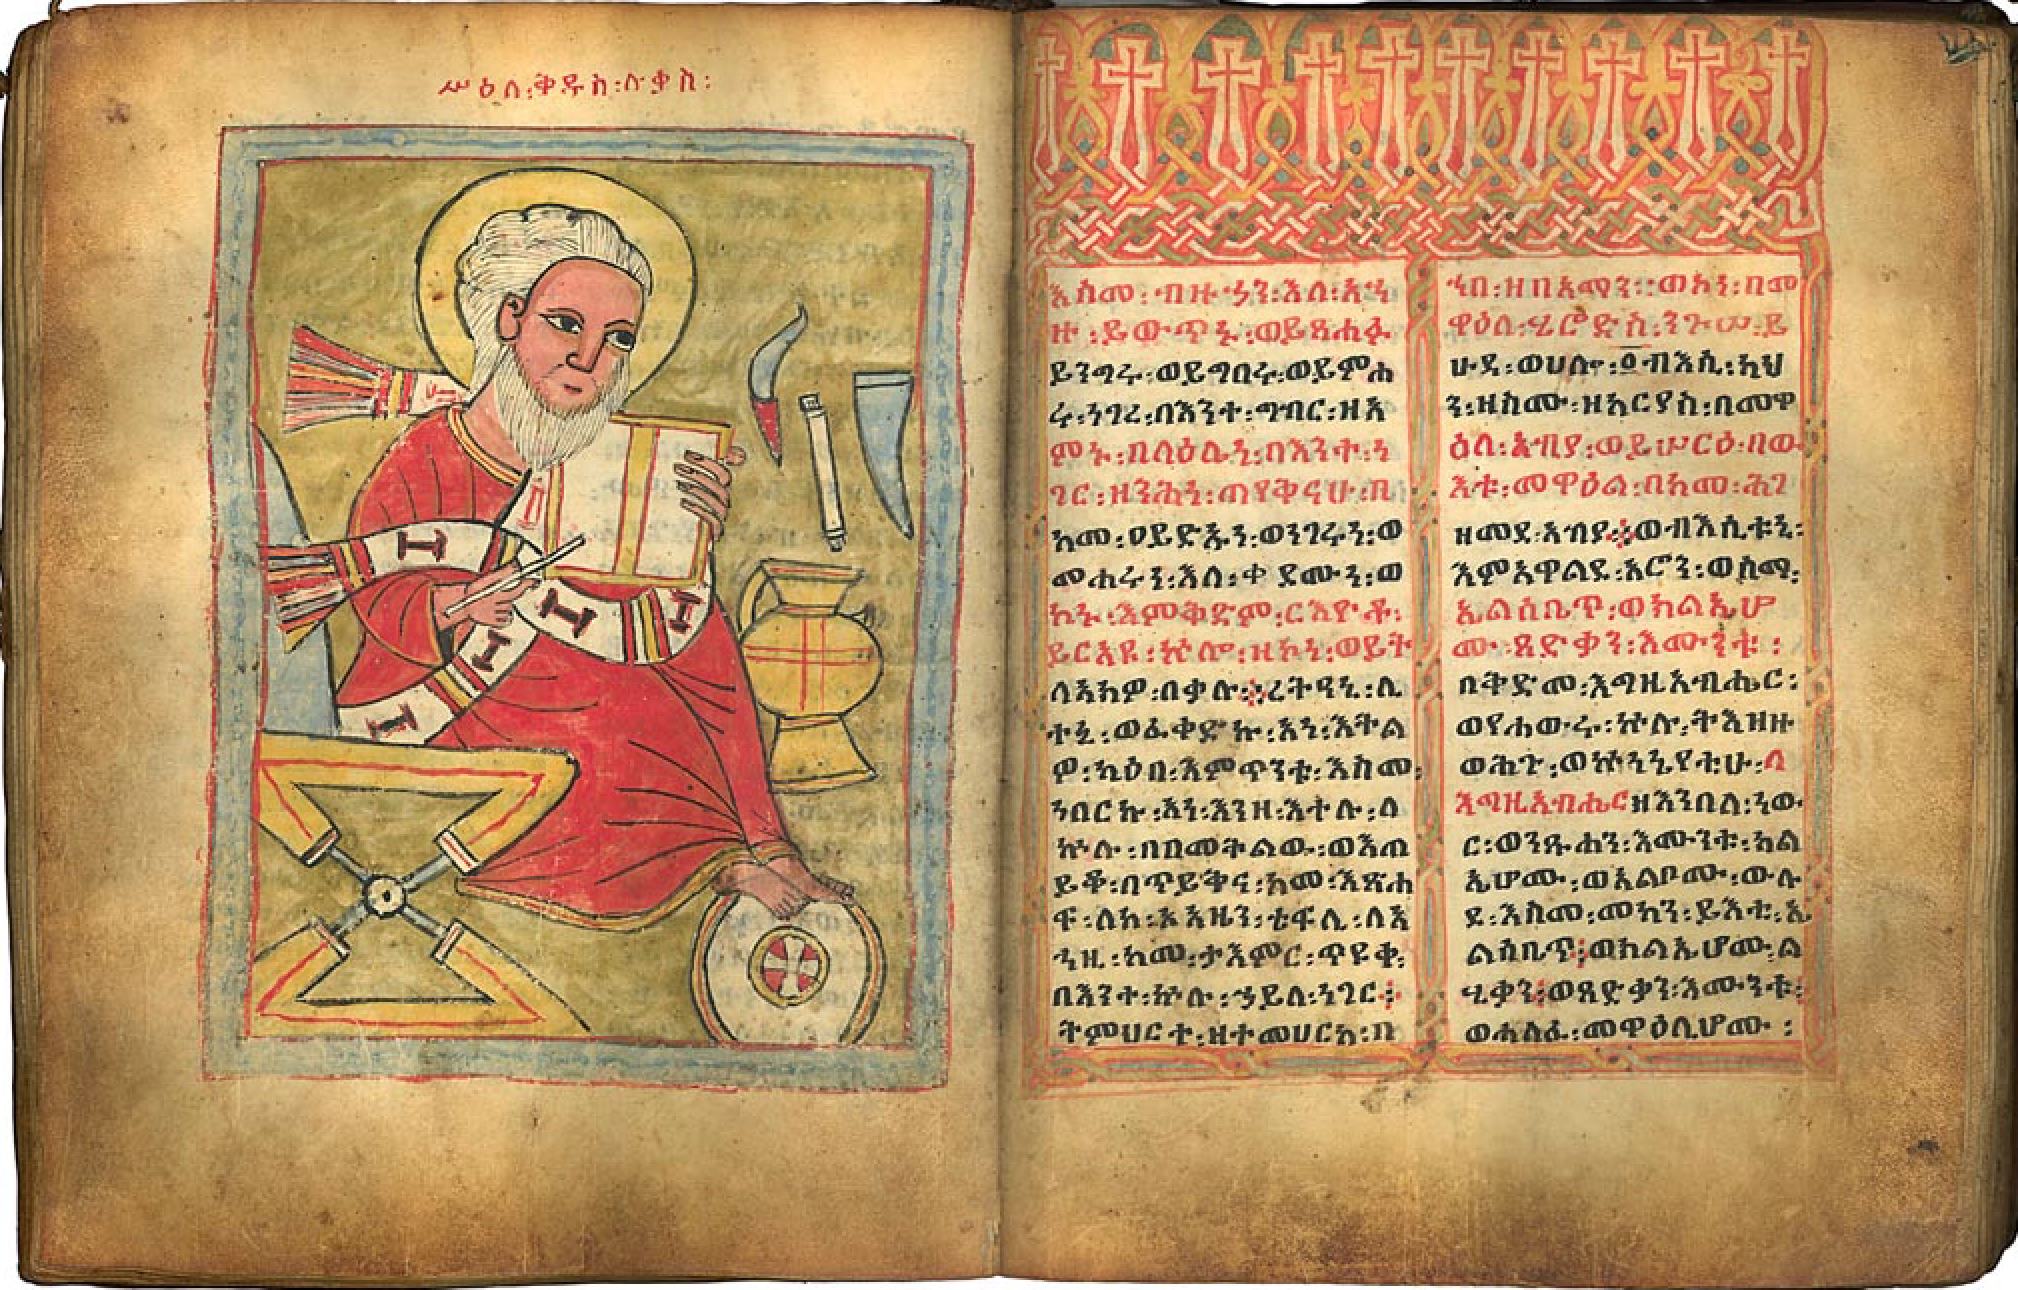 ሥዕለ፡ቅዱስ፡ሉቃስ፡
እስመ፡ብዙኃን፡እለ፡አኀ
ዙ፡ይውጥኑ፡ወይጸሐፉ
ይንግሩ፡ወይግበሩ፡ወይምሐ
ሩ፡ነገረ፡በእንተ፡ግብር፡ዘአ
ምኑ፡በላዕሌነ፡በእንተ፡ነ
ገር፡ዘንሕነ፡ጠየቅናሁ፡በ
ከመ፡ዐይድዑነ፡ወነገሩነ፡ወ
መሐሩነ፡እለ፡ቀደሙነ፡ወ
ከኑ፡እምቅድም፡ርእዮቶ፡
ይርአዩ፡ኵሎ፡ዘኮነ፡ወይት
ለአክዎ፡በቃሉ፨ረትዓኒ፡ሊ
ተኒ፡ወፈቀድኩ፡እነ፡እትል
ዎ፡ኪዕበ፡እምጥንቱ፡እስመ፡
ነበርኩ፡አነ፡እንዘ፡እተሉ፡ለ
ኵሉ፡በበመትልው፡ወእጠ
ይቆ፡በጥይቅና፡ከመ፡እጸሐ
ፍ፡ለከ፡ኦአዜን፡ቴፍሊ፡ለእ
ኀዚ፡ከመ፡ታእምር፡ጥዩቀ፡
በእንተ፡ኵሉ፡ኃይለ፡ነገር፨
ትምህርተ፡ዘተመሀርከ፡በ
ኀበ፡ዘበአማን፡፡ወኮነ፡በመ
ዋዕለ፡ሄሮድስ፡ንጉሠ፡ይ
ሁዳ፡ወሀሎ፡፩ብእሲ፡ካህ
ን፡ዘስሙ፡ዘካርያስ፡በመዋ
ዕለ፡አብያ፡ወይሠርዕ፡በው
እቱ፡መዋዕል፡በከመ፡ሕገ
ዘመደ፡አብያ፨ወብእሲቱኒ፡
እምአዋልደ፡አሮን፡ወስማ፡
ኤልሳቤጥ፡ወክልኤሆ
ሙ፡ጻድቃን፡እሙንቱ፡
በቅድመ፡እግዚአብሔር፡
ወየሐውሩ፡ኵሎ፡ትእዝዙ
ወሕጉ፡ወኵነኔየቲሁ፡ለ
እግዚአብሔርዘእንበለ፡ነው
ር፡ወንጹሐን፡እሙንቱ፡ክል
ኤሆሙ፡ወአልቦሙ፡ውሉ
ደ፡እስመ፡መካን፡ይእቲ፡ኤ
ልሳቤጥ፨ወክልኤሆሙ፡ል
ሂቃን፡ወጻድቃን፡እሙንቱ፡
ወሐለፈ፡መዋዕሊሆሙ፡